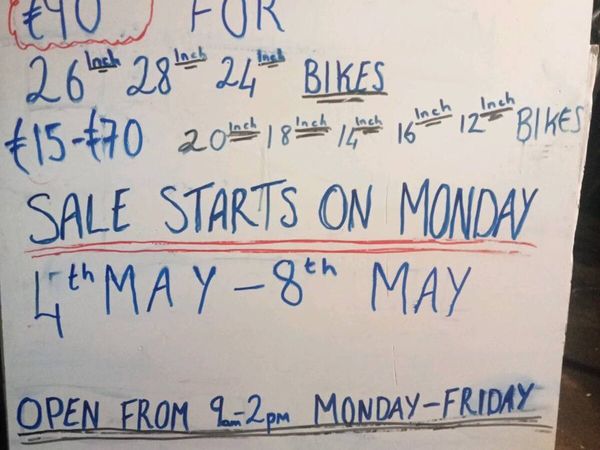 £90 FOR
26 Inch 28 Inch 24 Inch BIKES
£15-£70 20 Inch 18 Inch 14 Inch 16 Inch 12 Inch BIKES
SALE STARTS ON MONDAY
4th MAY - 8th MAY
OPEN FROM 9am-2pm MONDAY-FRIDAY